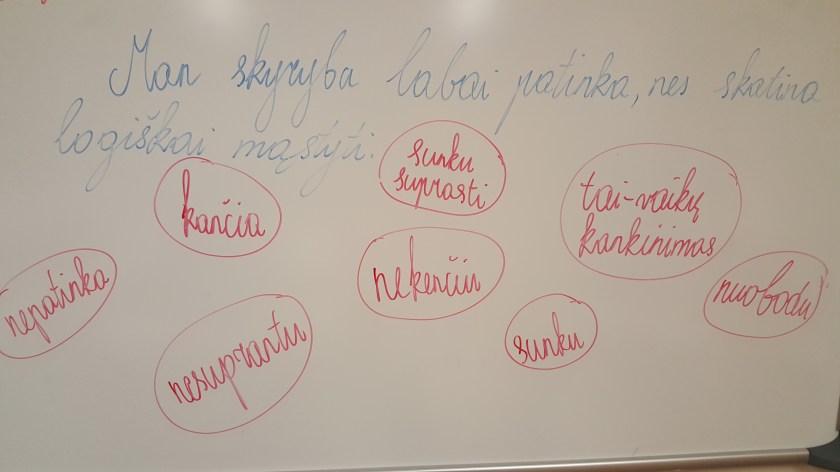 Man skyryba labai patinka, nes skatina
logiškai mąstyti.
sunku
suprasti
kančia
tai-vaikų
kankinimas
nepatinka
nekenčiu
nuobodu
nesuprantu
sunku